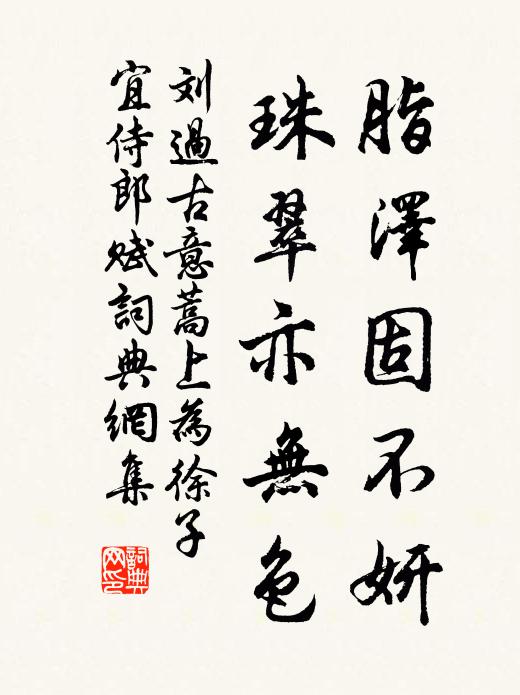 脂澤固不妍
珠翠亦無色
刘過古意蒿上為徐子
宜侍郎赋詞典網集
詞典网印